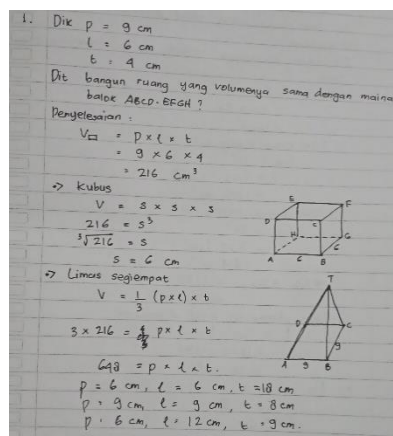 1. Dik p = 9 cm
l = 6 cm
t = 4 cm
Dit bangun ruang yang volumenya sama dengan maina
balok ABCD.EFGH ?
Penyelesaian :
V▭ = p x l x t
= 9 x 6 x 4
= 216 cm³
-> Kubus
V = s x s x s
216 = s³
³√216 = s
s = 6 cm
E F
D C
H G
A 6 B 6
-> Limas segiempat
V = 1/3 (p x l) x t
3 x 216 = p x l x t
648 = p x l x t.
p = 6 cm, l = 6 cm, t = 18 cm
p = 9 cm, l = 9 cm, t = 8 cm
p = 6 cm, l = 12 cm, t = 9 cm.
T
D C
9
A 9 B